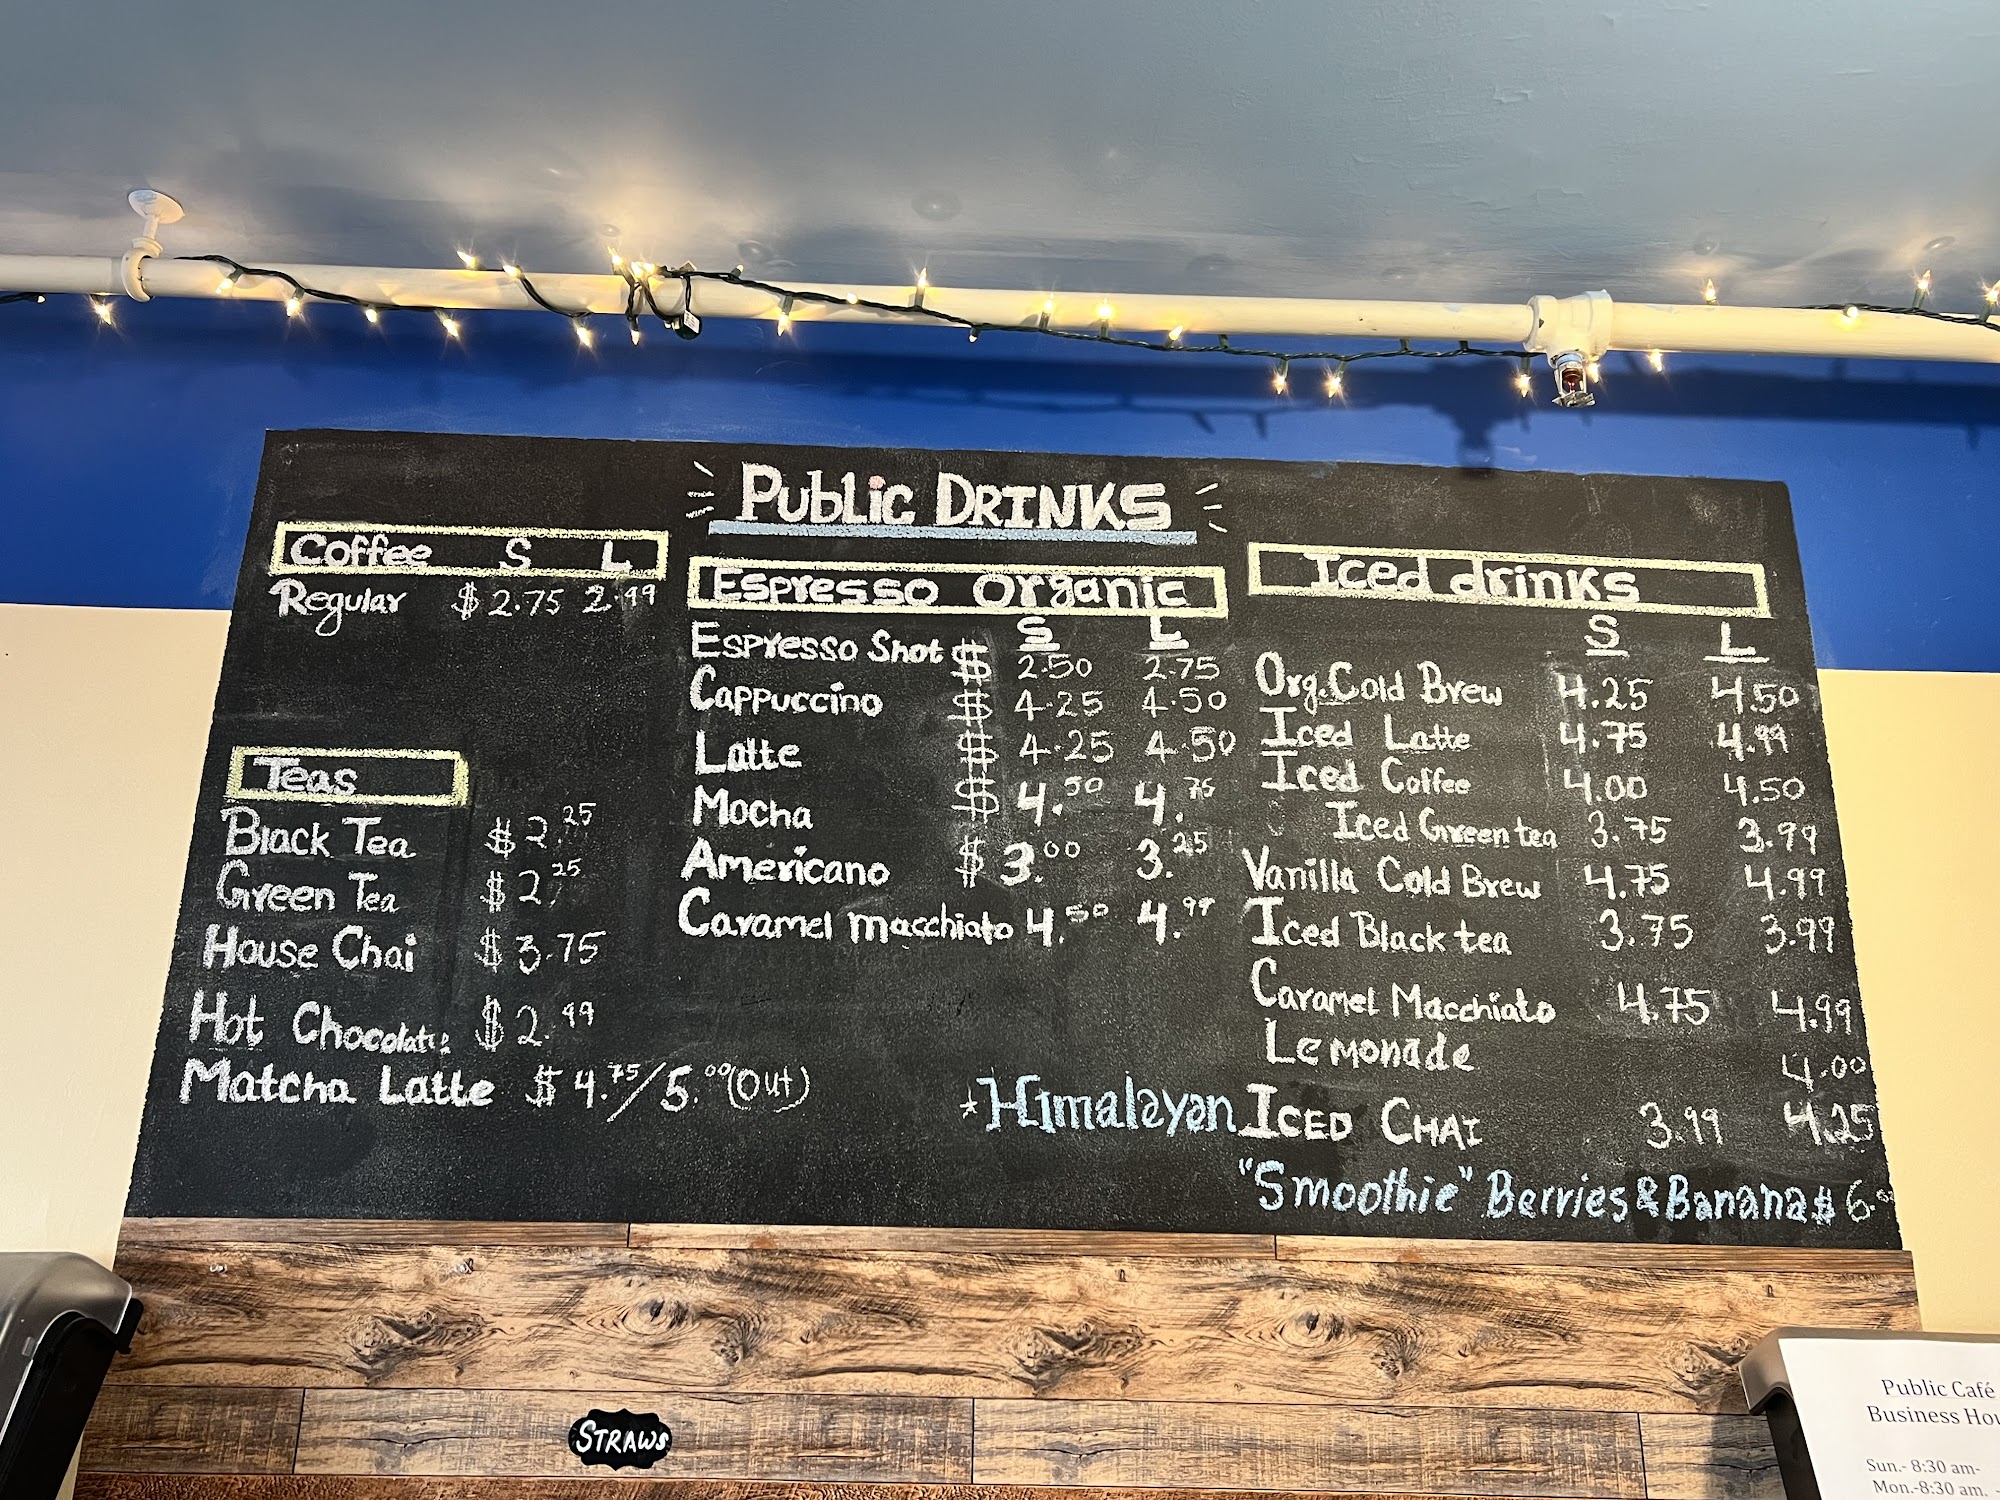 Public DRINKS
Coffee S L
Regular $ 2.75 2.99
Teas
Black Tea $ 2.25
Green Tea $ 2.25
House Chai $ 3.75
Hot Chocolate $ 2.99
Matcha Latte $ 4.75/5.00 (Out)
Espresso Organic
S L
Espresso Shot $ 2.50 2.75
Cappuccino $ 4.25 4.50
Latte $ 4.25 4.50
Mocha $ 4.50 4.75
Americano $ 3.00 3.25
Caramel macchiato 4.50 4.99
Iced drinks
S L
Org. Cold Brew 4.25 4.50
Iced Latte 4.75 4.99
Iced Coffee 4.00 4.50
Iced Green tea 3.75 3.99
Vanilla Cold Brew 4.75 4.99
Iced Black tea 3.75 3.99
Caramel Macchiato 4.75 4.99
Lemonade 4.00
*Himalayan ICED CHAI 3.99 4.25
"Smoothie" Berries & Banana $ 6.
STRAWS
Public Café
Business Hou
Sun.- 8:30 am-
Mon.-8:30 am. -